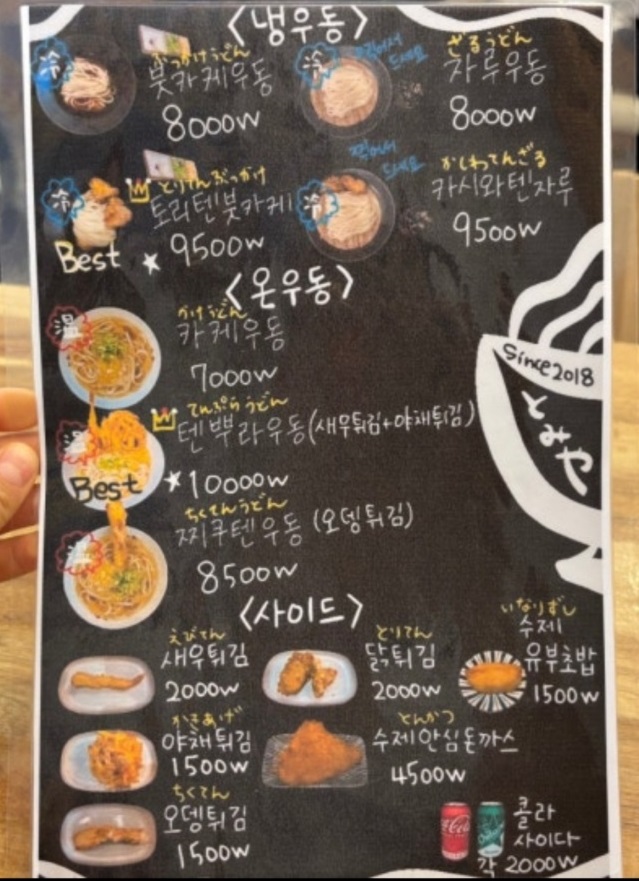 <냉우동>
冷
ぶっかけうどん
붓카케우동
8000W
冷
찍어서
드세요
ざるうどん
자루우동
8000W
冷
とりてんぶっかけ
토리텐붓카케
Best ★ 9500W
冷
찍어서
드세요
かしわてんざる
카시와텐자루
9500W
<온우동>
温
かけうどん
카케우동
7000W
温
てんぷらうどん
텐뿌라우동(새우튀김+야채튀김)
Best ★ 10000W
温
ちくてんうどん
찌쿠텐우동 (오뎅튀김)
8500W
Since 2018
とみや
<사이드>
えびてん
새우튀김
2000W
とりてん
닭튀김
2000W
いなりずし
수제
유부초밥
1500W
かきあげ
야채튀김
1500W
とんかつ
수제안심돈까스
4500W
ちくてん
오뎅튀김
1500W
콜라
사이다
각 2000W